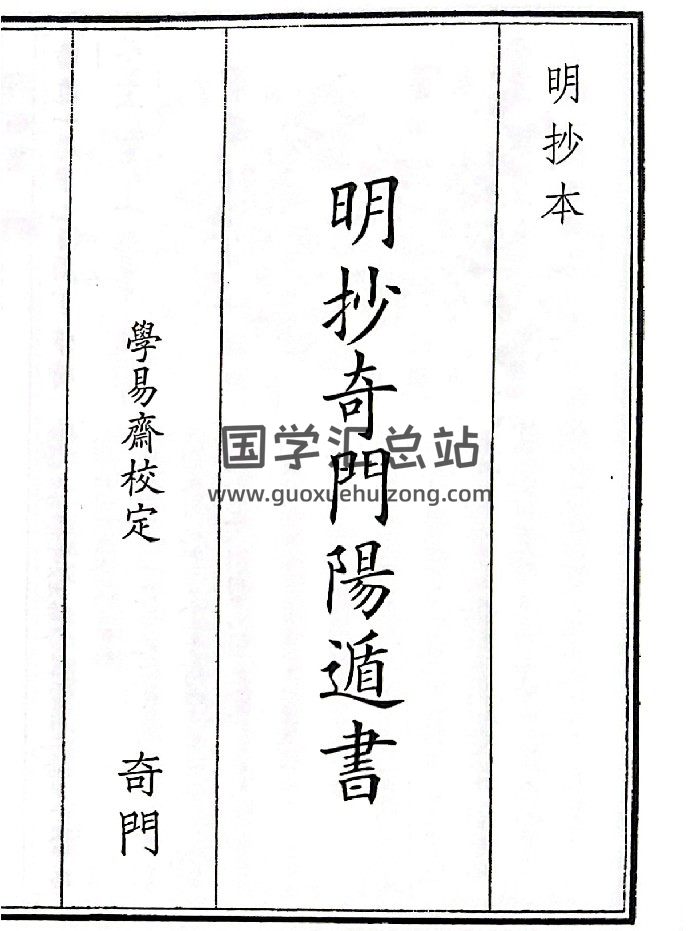 明抄本
明抄奇門陽遁書
學易齋校定
奇門
国学汇总站
www.guoxuehuizong.com